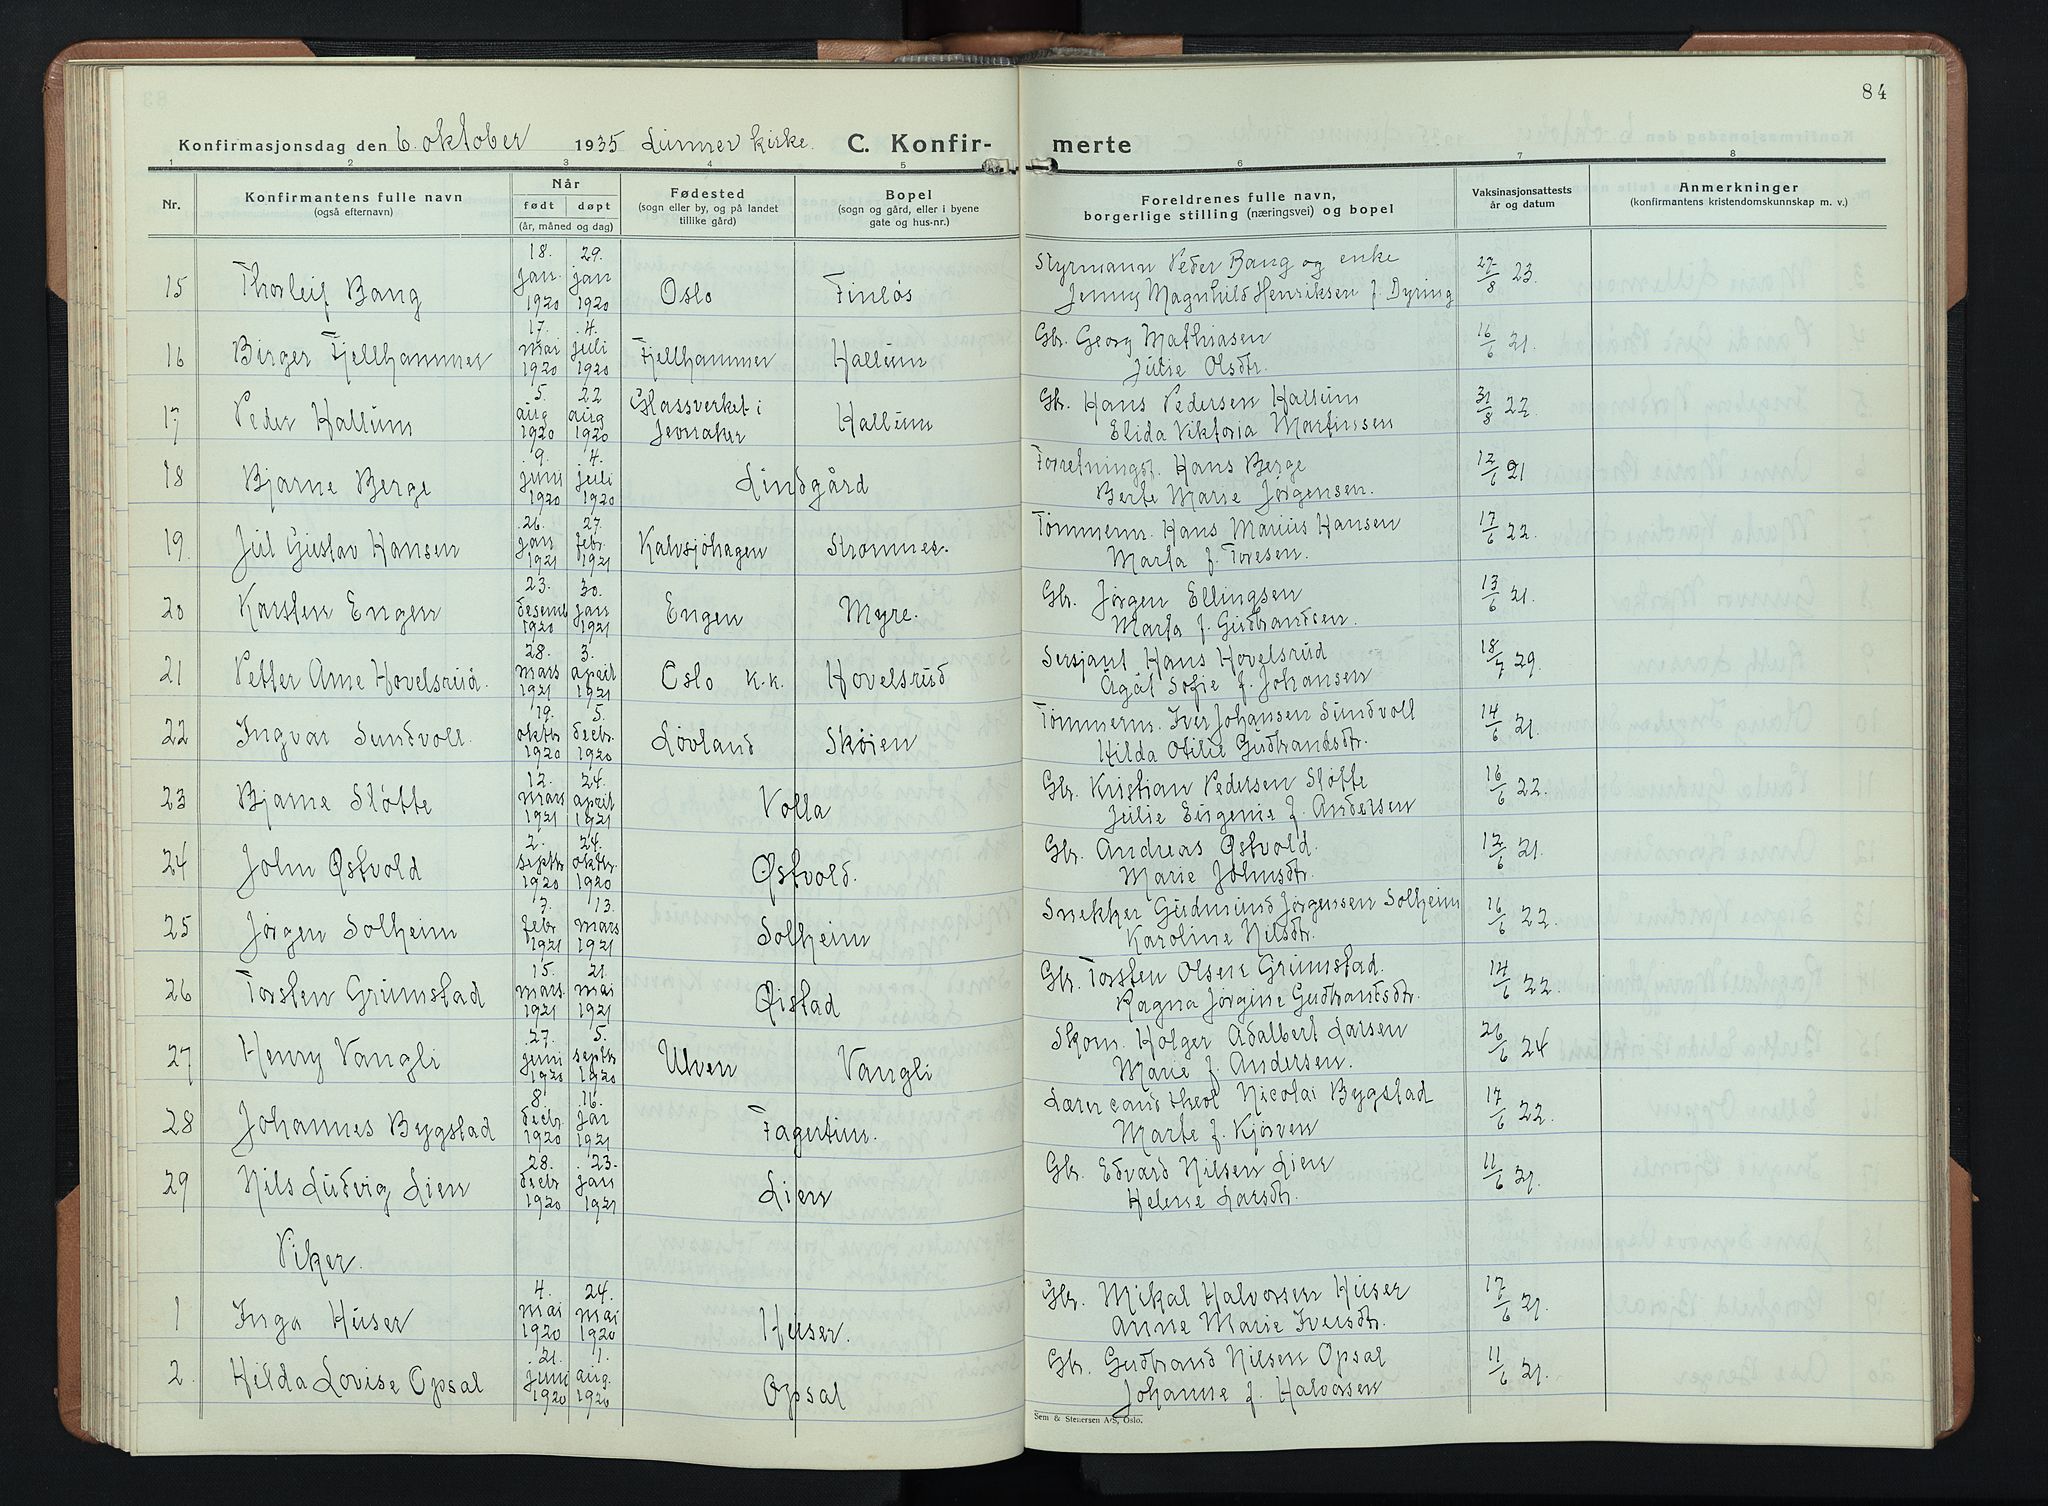 84
Konfirmasjonsdag den 6. oktober 1935 Lunner kirke. C. Konfir- merte
1 2 3 4 5 6 7 8
Nr. Konfirmantens fulle navn (også efternavn) Når født døpt (år, måned og dag) Fødested (sogn eller by, og på landet tillike gård) Bopel (sogn og gård, eller i byene gate og hus-nr.) Foreldrenes fulle navn, borgerlige stilling (næringsvei) og bopel Vaksinasjonsattests år og datum Anmerkninger (konfirmantens kristendomskunnskap m. v.)
15 Thorleif Bang 18. jan. 1920 29. jan 1920 Oslo Finlös Styrmann Peder Bang og enke Jenny Magnhild Henriksen f. Dyring 27/8 23.
16 Birger Fjellhammer 17. mai 1920 4. juli 1920 Fjellhammer Hallum Gbr. Georg Mathiasen Julie Olsdtr. 16/6 21.
17 Peder Hallum 5. aug 1920 22 aug 1920 Glassverket i Jevnaker Hallum Gbr. Hans Pedersen Hallum Elida Viktoria Martinsen 31/8 22.
18 Bjarne Berge 9. juni 1920 4. juli 1920 Lindgård Forretningsf. Hans Berge Berte Marie Jörgensen. 12/6 21
19. Jul Gustav Hansen 26. jan 1921 27. febr. 1921 Kalvsjöhagen Strømnes. Tömmerm. Hans Marius Hansen Marta f. Toresen. 17/6 22.
20 Karsten Engen 23. desemb 1920 30. jan 1921 Engen Myre. Gbr. Jörgen Ellingsen Marta f. Gudbrandsen. 13/6 21.
21 Petter Arne Hovelsrud. 28. mars 1921 3. april 1921 Oslo k.k. Hovelsrud Sersjant Hans Hovelsrud Ågåt Sofie f. Johansen 18/7 29.
22 Ingvar Sundvoll. 19. oktbr. 1920 5. decbr. 1920 Lövland Skøien Tömmerm. Iver Johansen Sundvoll Hilda Otilie Gudbrandsdtr. 14/6 21.
23 Bjarne Sløtte 12. mars 1921 24. april 1921 Volla Gbr. Kristian Pedersen Sløtte Julie Eugenie f. Andersen 16/6 22.
24 John Østvold 2. septbr. 1920 24. oktbr. 1920 Østvold. Gbr. Andreas Østvold. Marie Johnsdtr. 12/6 21.
25 Jörgen Solheim 7. febr 1921 13. mars 1921 Solheim Snekker Gudmund Jörgensen Solheim Karoline Nilsdtr. 16/6 22.
26 Torsten Grimstad 15. mars. 1921 21. mai 1921 Øistad Gbr. Torsten Olsen Grimstad. Ragna Jörgine Gudbrandsdtr. 14/6 22.
27 Henry Vangli 27. juni 1920 5. septbr 1920 Ulven Vangli Skom. Holger Adalbert Larsen Marie f. Andersen. 26/6 24
28 Johannes Bygstad 8. decbr. 1920 16. jan 1921 Fagertun. Lærer cand theol Nicolai Bygstad Marte f. Kjörven 17/6 22.
29 Nils Ludvig Lien 28. decbr 1920 23. jan 1921 Lien Gbr. Edvard Nilsen Lien Helene Larsdtr. 11/6 21.
Viker.
1 Inga Huser 4. mai 1920 24. mai 1920 Huser. Gbr. Mikal Halvorsen Huser Anne Marie Iversdtr. 17/6 21.
2. Hilda Lovise Opsal 21. juni 1920 1. aug. 1920 Opsal Gbr. Gudbrand Nilsen Opsal Johanne f. Halvorsen 11/6 21.
Sem & Stenersen A/S, Oslo.